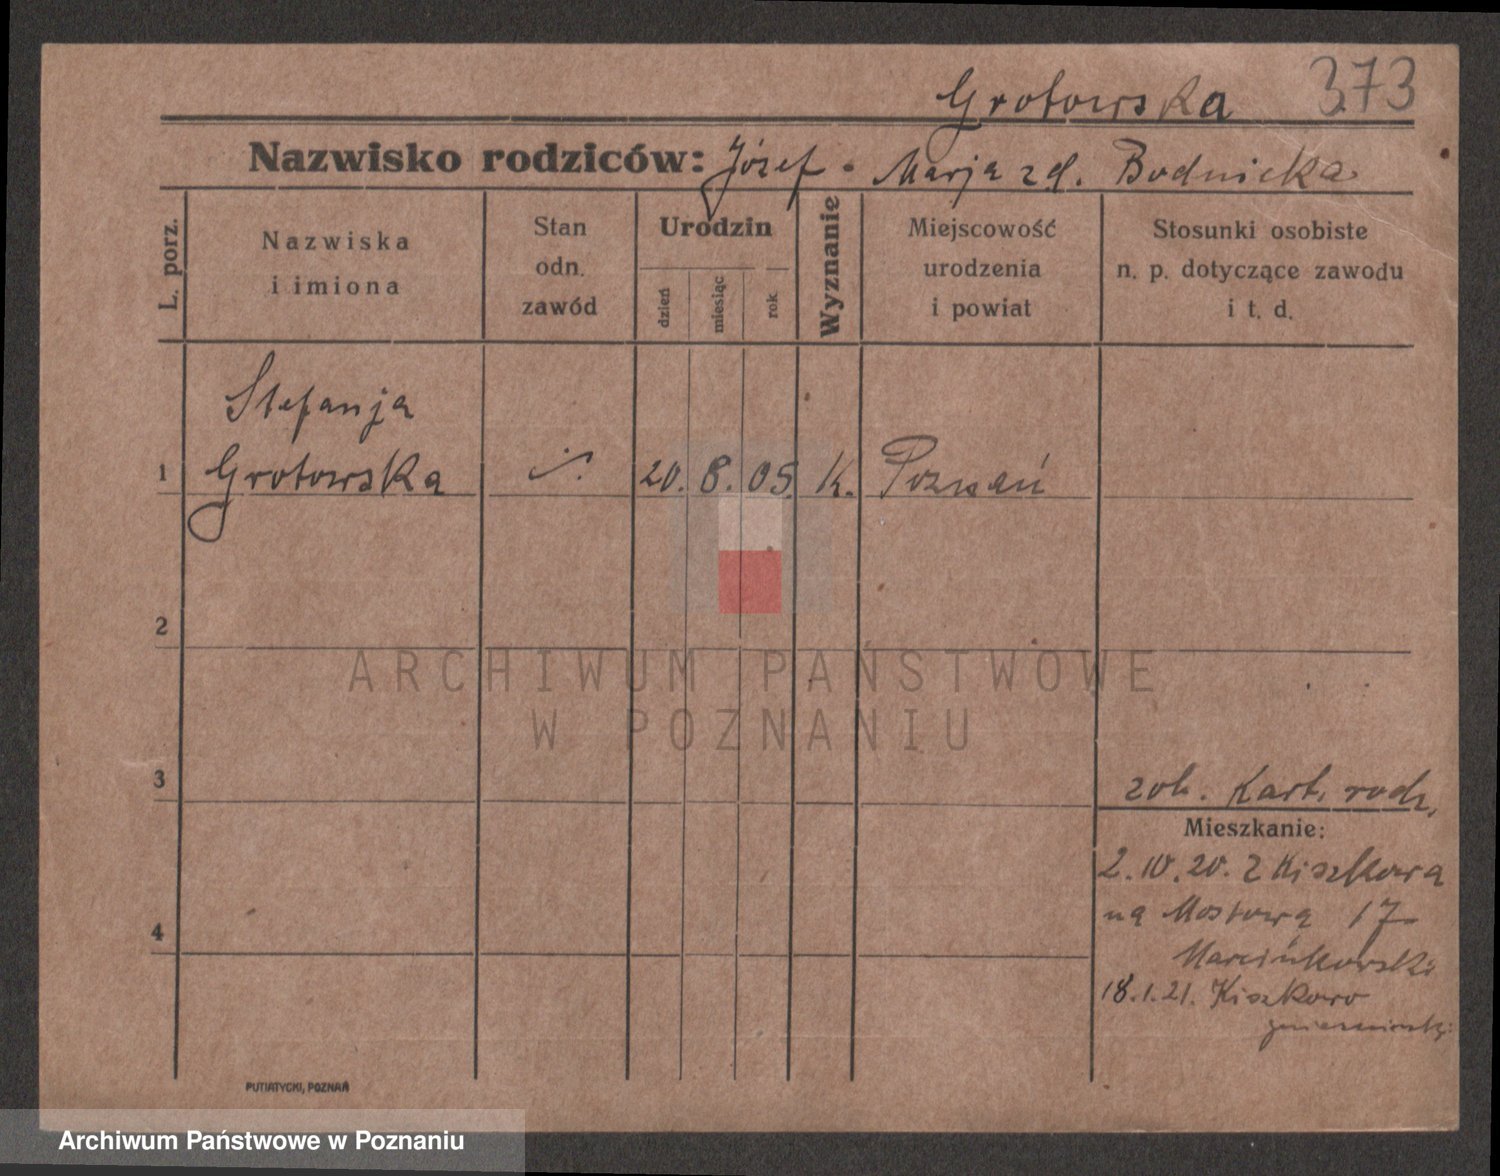 Grotowska 373
Nazwisko rodziców: Józef - Marja zd. Bodnicka
L. porz.
Nazwiska
i imiona
Stan
odn.
zawód
Urodzin
dzień
miesiąc
rok
Wyznanie
Miejscowość
urodzenia
i powiat
Stosunki osobiste
n. p. dotyczące zawodu
i t. d.
Stefanja
1 Grotowska ./. 20. 8. 05. K. Poznań
2
3
zob. Kart. rodz.
Mieszkanie:
2.10.20. z Kiszkowa
na Mostową 17
Marcinkowski
18.1.21. Kiszkowo
4
PUTIATYCKI, POZNAŃ
ARCHIWUM PAŃSTWOWE
W POZNANIU
Archiwum Państwowe w Poznaniu